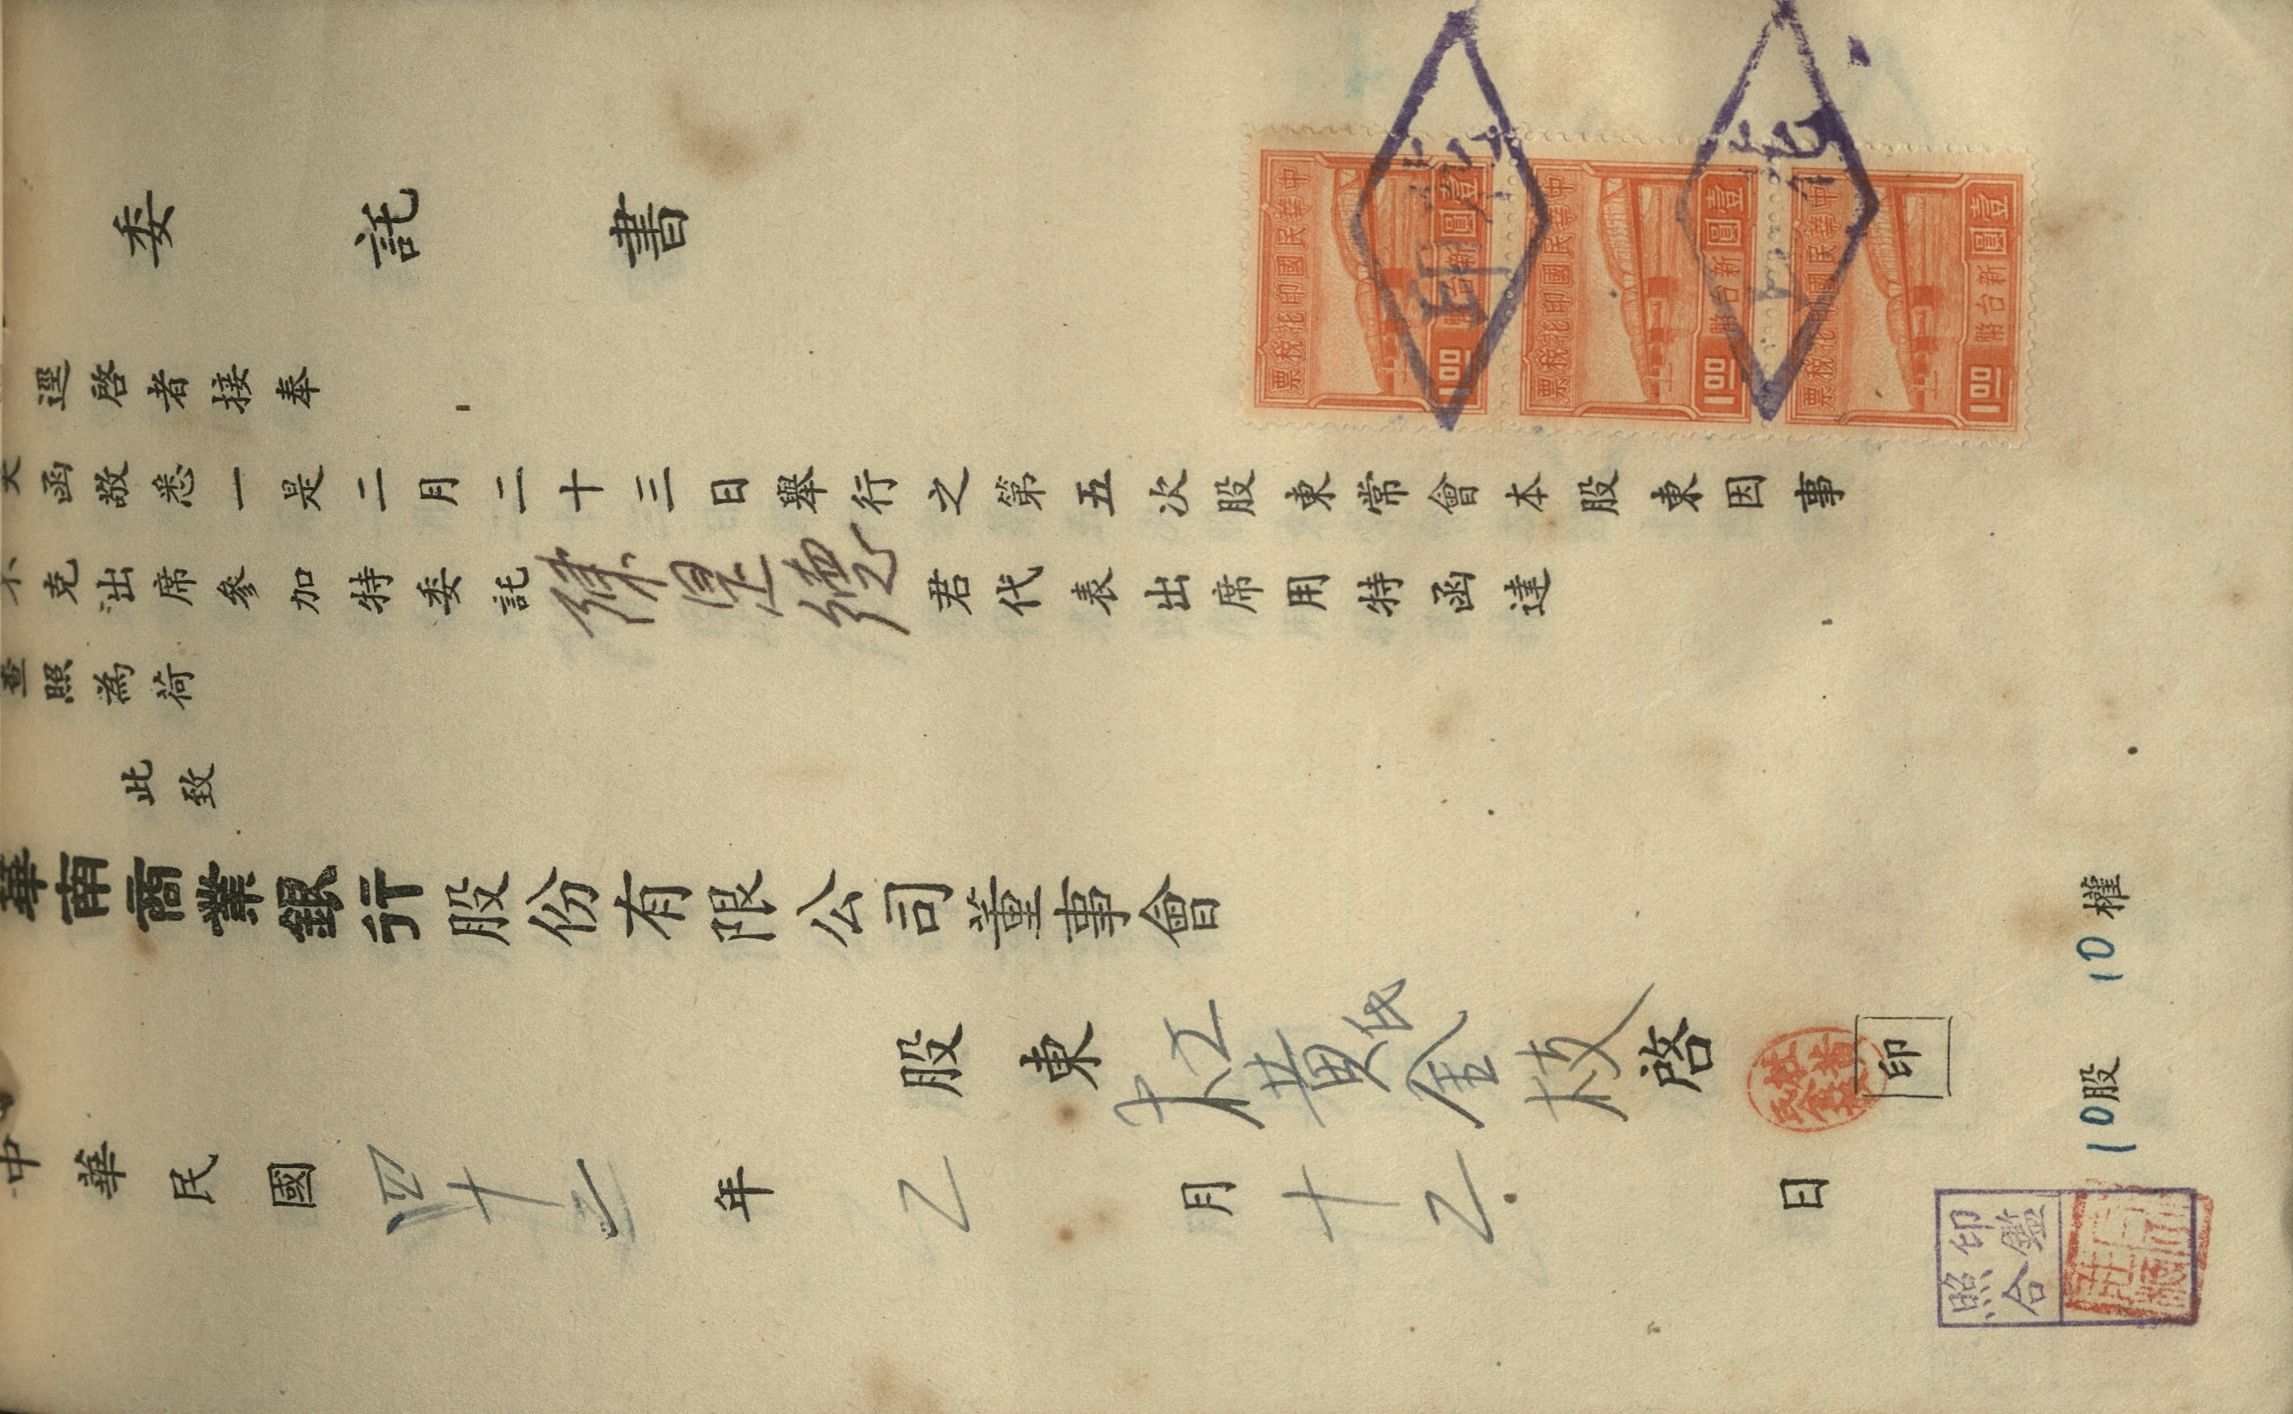 委託書
逕啓者接奉
大函敬悉一是二月二十三日舉行之第五次股東常會本股東因事
不克出席參加特委託君代表出席用特函達
查照為荷
此致
華南商業銀行股份有限公司董事會
股東杜黃氏金枝啓 印
中華民國四十一年二月十二日
10股 10權
印鑑照合
中華民國印花稅票
壹圓 新台幣 1.00
中華民國印花稅票
壹圓 新台幣 1.00
中華民國印花稅票
壹圓 新台幣 1.00